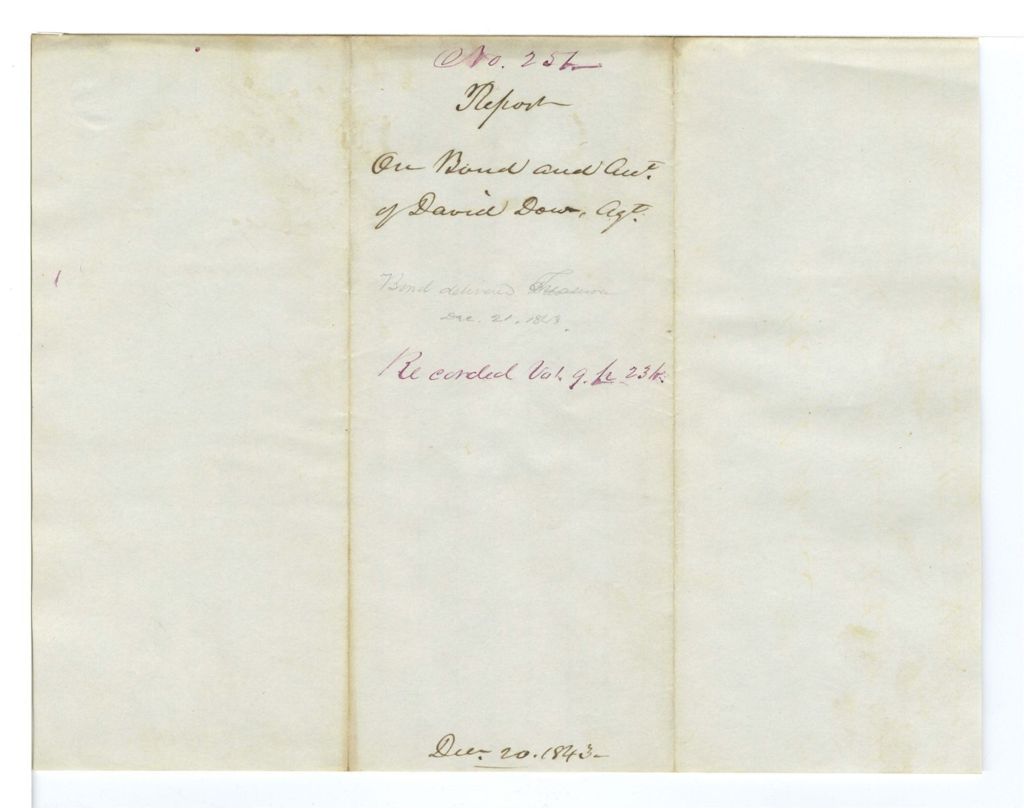 No. 251
Report
On Bond and Acct.
of David Dow, Agt.
Bond delivered Treasurer
Dec. 21. 1843.
Recorded Vol. 9. p. 231.
Decr. 20. 1843